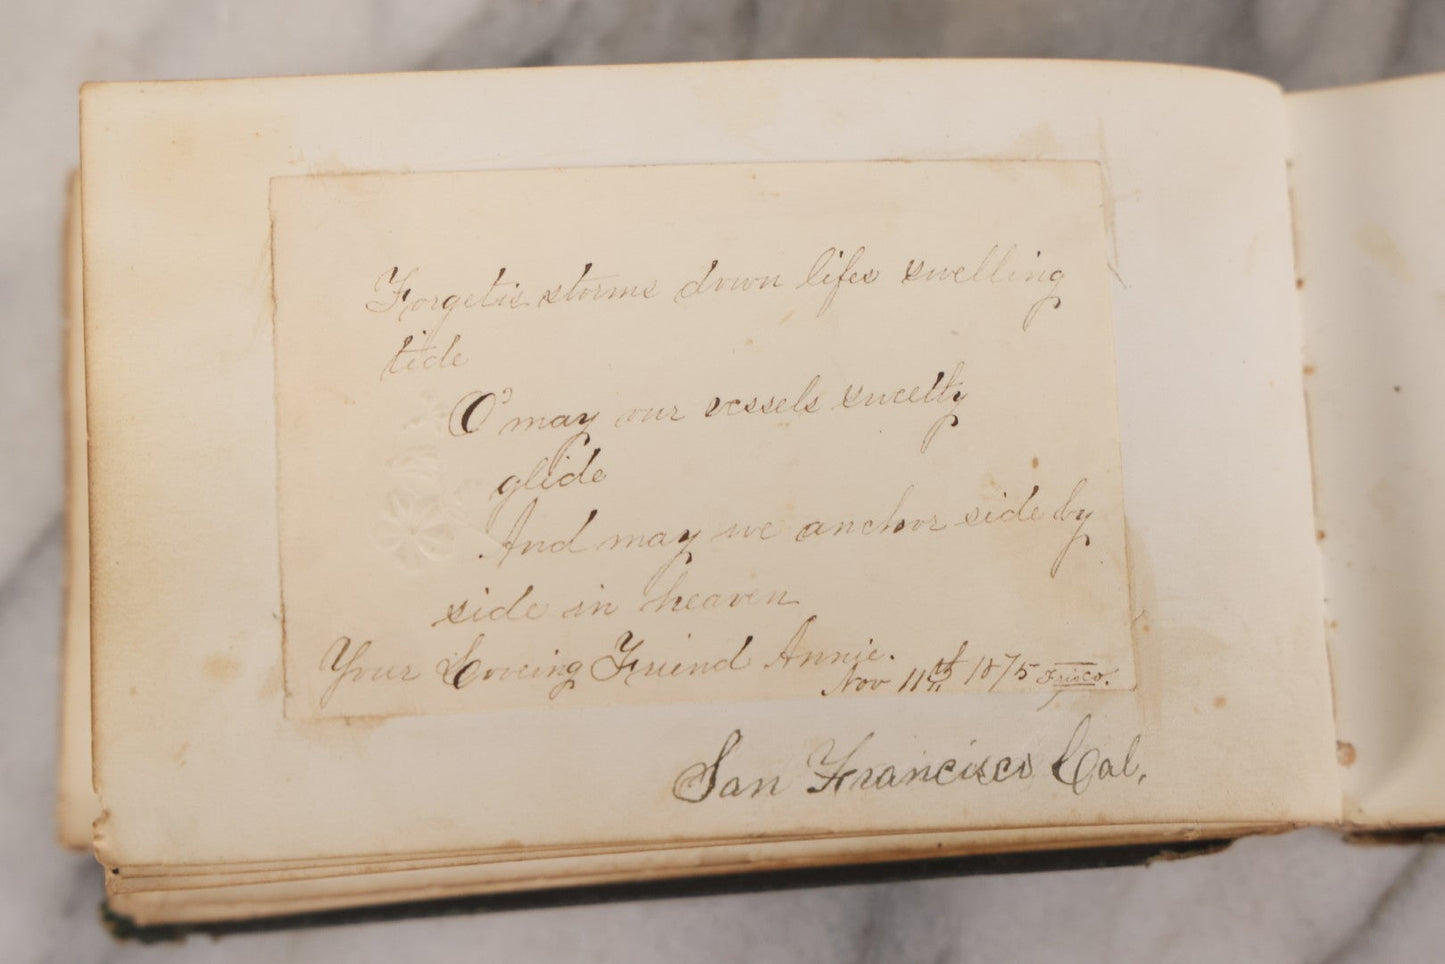 Forgetis storms down lifes swelling
tide
O' may our vessels sweetly
glide
And may we anchor side by
side in heaven
Your Loveing Friend Annie.
Nov 11th 1875 Frisco.
San Francisco Cal,